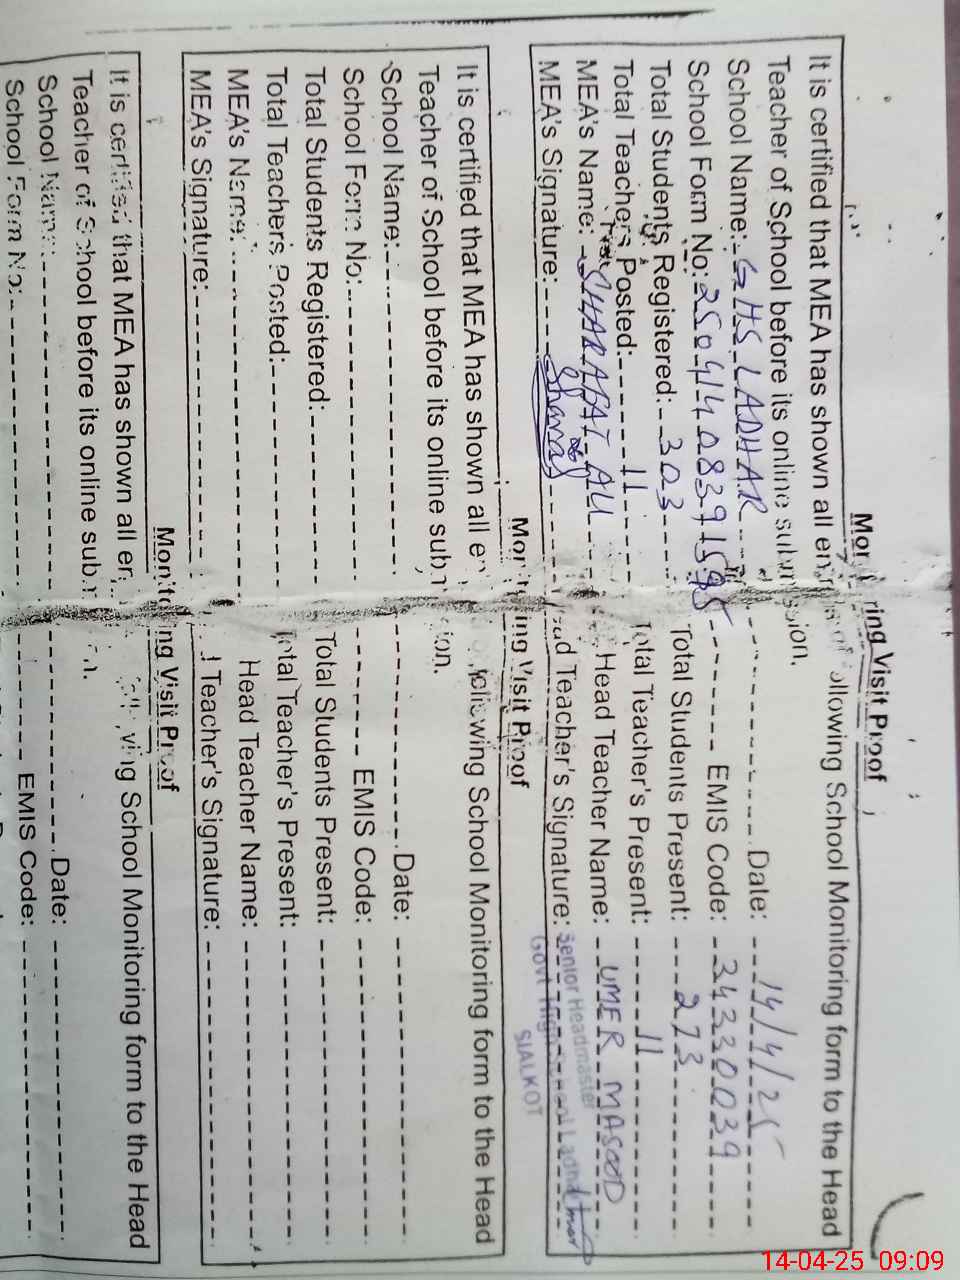 Monitoring Visit Proof
It is certified that MEA has shown all entries of following School Monitoring form to the Head
Teacher of School before its online submission.
School Name: GHS LADHAR Date: 14/4/25
School Form No: EMIS Code: 34330039
Total Students Registered: 303 Total Students Present: 273
Total Teachers Posted: 11 Total Teacher's Present: 11
MEA's Name: SHARAFAT ALI Head Teacher Name: UMER MASOOD
MEA's Signature: Head Teacher's Signature:
Senior Headmaster
Govt High School Ladhar
SIALKOT
Monitoring Visit Proof
It is certified that MEA has shown all following School Monitoring form to the Head
Teacher of School before its online submission.
School Name: Date:
School Form No: EMIS Code:
Total Students Registered: Total Students Present:
Total Teachers Posted: Total Teacher's Present:
MEA's Name: Head Teacher Name:
MEA's Signature: Teacher's Signature:
Monitoring Visit Proof
It is certified that MEA has shown all following School Monitoring form to the Head
Teacher of School before its online
School Name: Date:
School Form No: EMIS Code:
14-04-25 09:09